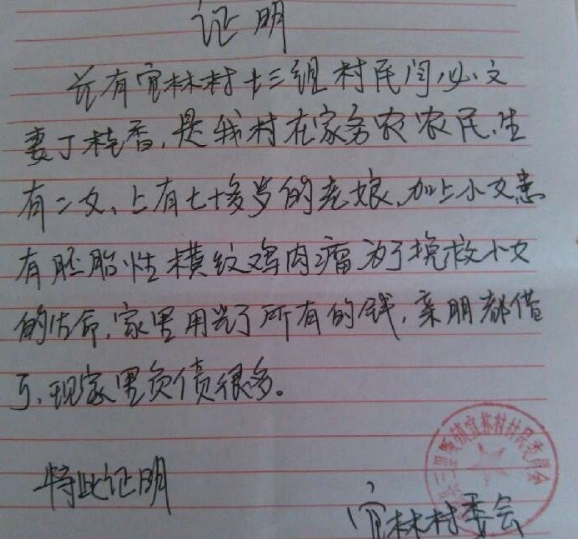 证明
兹有官林村十三组村民闫必文
妻丁桂香,是我村在家务农农民,生
有二女、上有七十多岁的老娘,加上小女患
有胚胎性横纹鸡肉瘤为了挽救小女
的估命,家里用光了所有的钱,亲朋都借
了、现家里负债很多。
特此证明
官林村委会
林村村民委员会